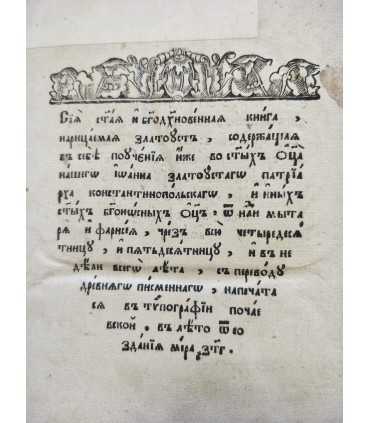 Сїѧ ст҃аѧ и҆ бг҃одх҃новеннаѧ книга ,
нарицаемаѧ златоустъ , содержащаѧ
въ себѣ поучєнїѧ и҆же во ст҃ыхъ ѻ҆ц҃а
нашегѡ і҆ѡанна златоустагѡ патрїа
рха константинопольскагѡ , и҆ и҆ныхъ
ст҃ыхъ бг҃оносныхъ ѻ҆ц҃ъ , ѿ нд҃ли мыта
рѧ и҆ фарисеѧ , чрезъ всю четыредесѧ
тницу , и҆ пѧтьдесѧтницу , и҆ въ не
дѣли всегѡ лѣта , съ переводу
древнѧгѡ писменнагѡ , напечата
сѧ въ тѵпографїи почае
вской , въ лѣто ѿ со
зданїѧ мїра